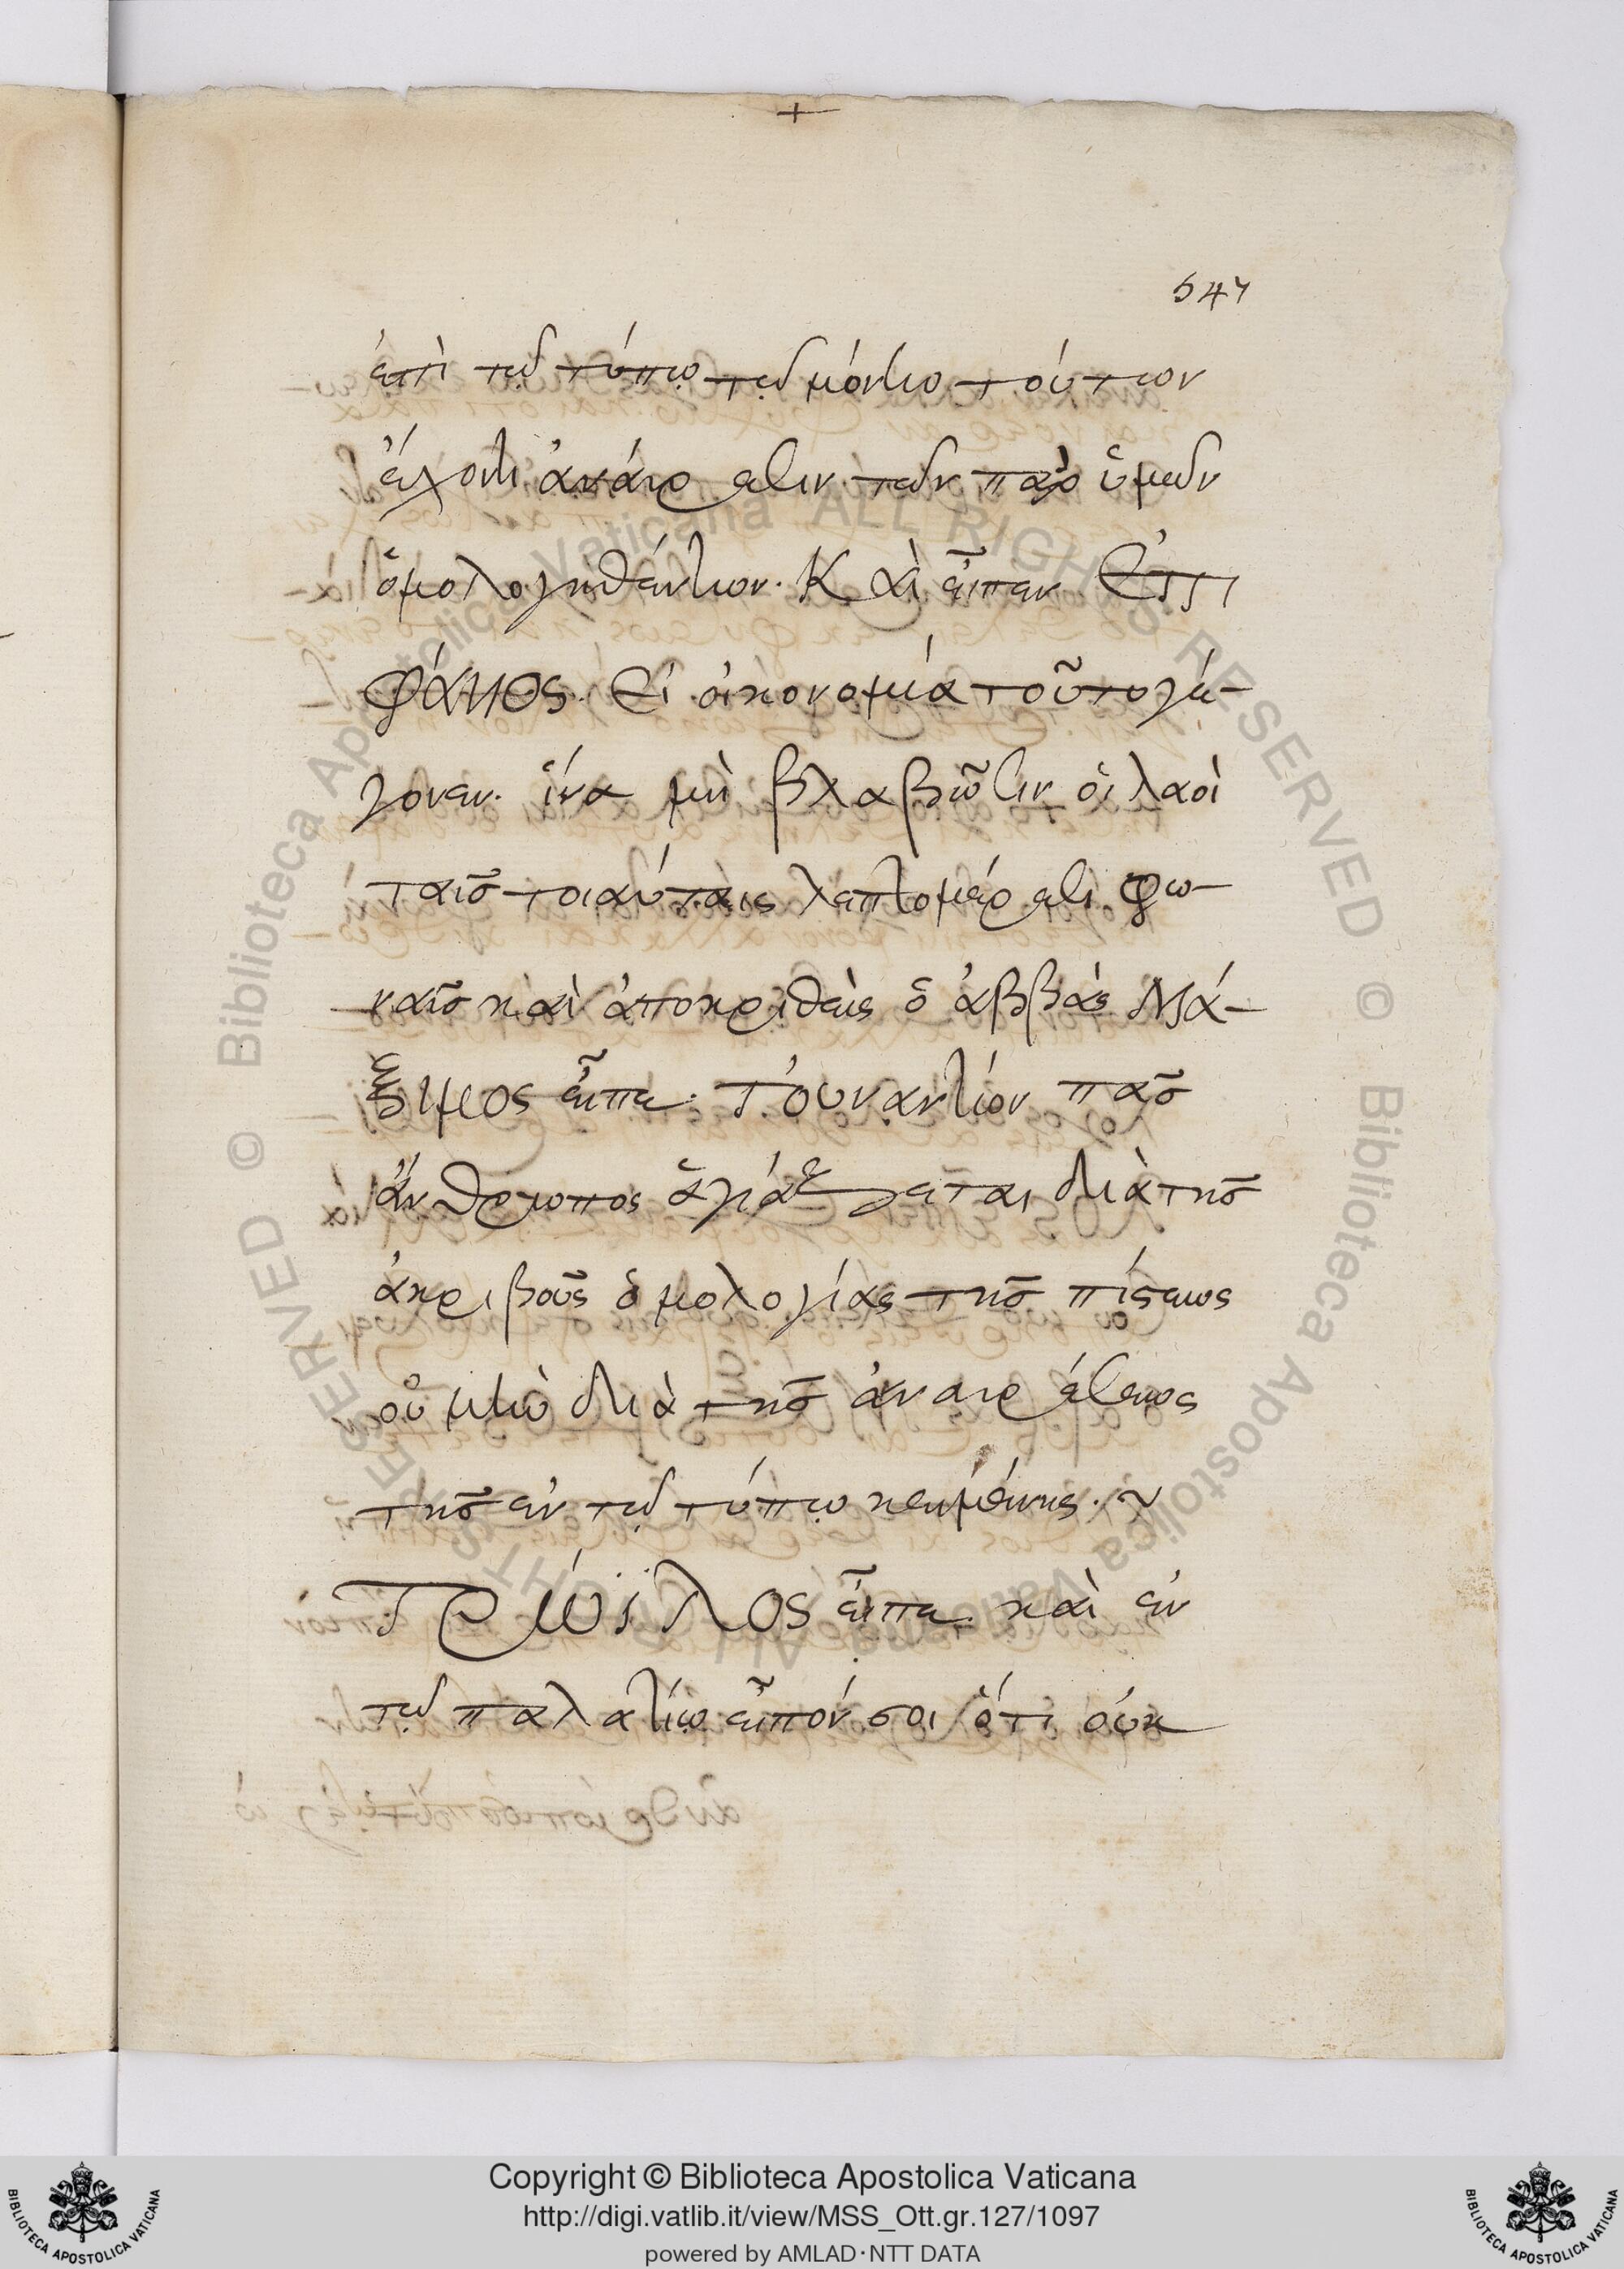 +
547
ἐπὶ τῷ τύπῳ τῷ μόντω τούτων
ἔχοντι ἀναίρεσιν τῶν παρ ὑμῶν
ὁμολογηθέντων. Καὶ εἶπεν Ἐπι
φάνιος. Εἰ οἰκονομία τοῦτο γέ-
γονεν. ἵνα μὴ βλαβῶσιν οἱ λαοὶ
ταῖς τοιαύταις λεπτομέρεσι φω-
ναῖς καὶ ἀποκριθεὶς ὁ ἀββᾶς Μά-
ξιμος εἶπε. Τοὐναντίον πᾶς
ἄνθρωπος ἁγιάζεται διὰ τῆς
ἀκριβοῦς ὁμολογίας τῆς πίστεως
οὐ μὴν διὰ τῆς ἀναιρέσεως
τῆς ἐν τῷ τύπῳ κειμένης. ~
Τρώϊλος εἶπε. καὶ ἐν
τῷ παλατίῳ εἶπόν σοι ὅτι οὐκ
Copyright © Biblioteca Apostolica Vaticana
http://digi.vatlib.it/view/MSS_Ott.gr.127/1097
powered by AMLAD·NTT DATA
BIBLIOTECA APOSTOLICA VATICANA
BIBLIOTECA APOSTOLICA VATICANA
© Biblioteca Apostolica Vaticana ALL RIGHTS RESERVED
© Biblioteca Apostolica Vaticana ALL RIGHTS RESERVED